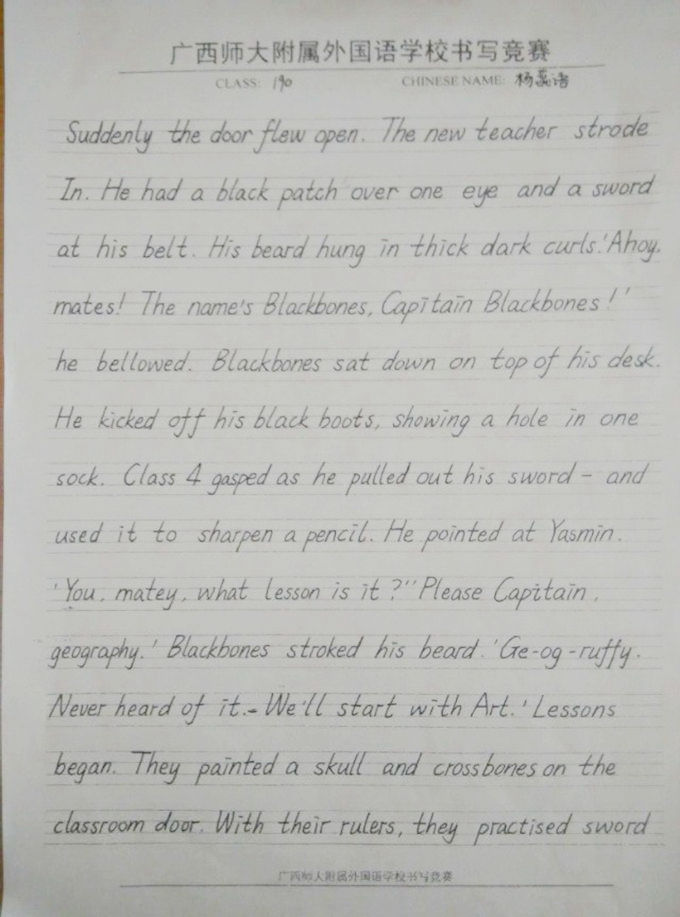 广西师大附属外国语学校书写竞赛
CLASS: 190 CHINESE NAME: 杨蕊语
Suddenly the door flew open. The new teacher strode
In. He had a black patch over one eye and a sword
at his belt. His beard hung in thick dark curls.'Ahoy,
mates! The name's Blackbones, Capitain Blackbones!'
he bellowed. Blackbones sat down on top of his desk.
He kicked off his black boots, showing a hole in one
sock. Class 4 gasped as he pulled out his sword - and
used it to sharpen a pencil. He pointed at Yasmin.
'You, matey, what lesson is it?''Please Capitain,
geography.' Blackbones stroked his beard.'Ge-og-ruffy.
Never heard of it.- We'll start with Art.' Lessons
began. They painted a skull and crossbones on the
classroom door. With their rulers, they practised sword
广西师大附属外国语学校书写竞赛